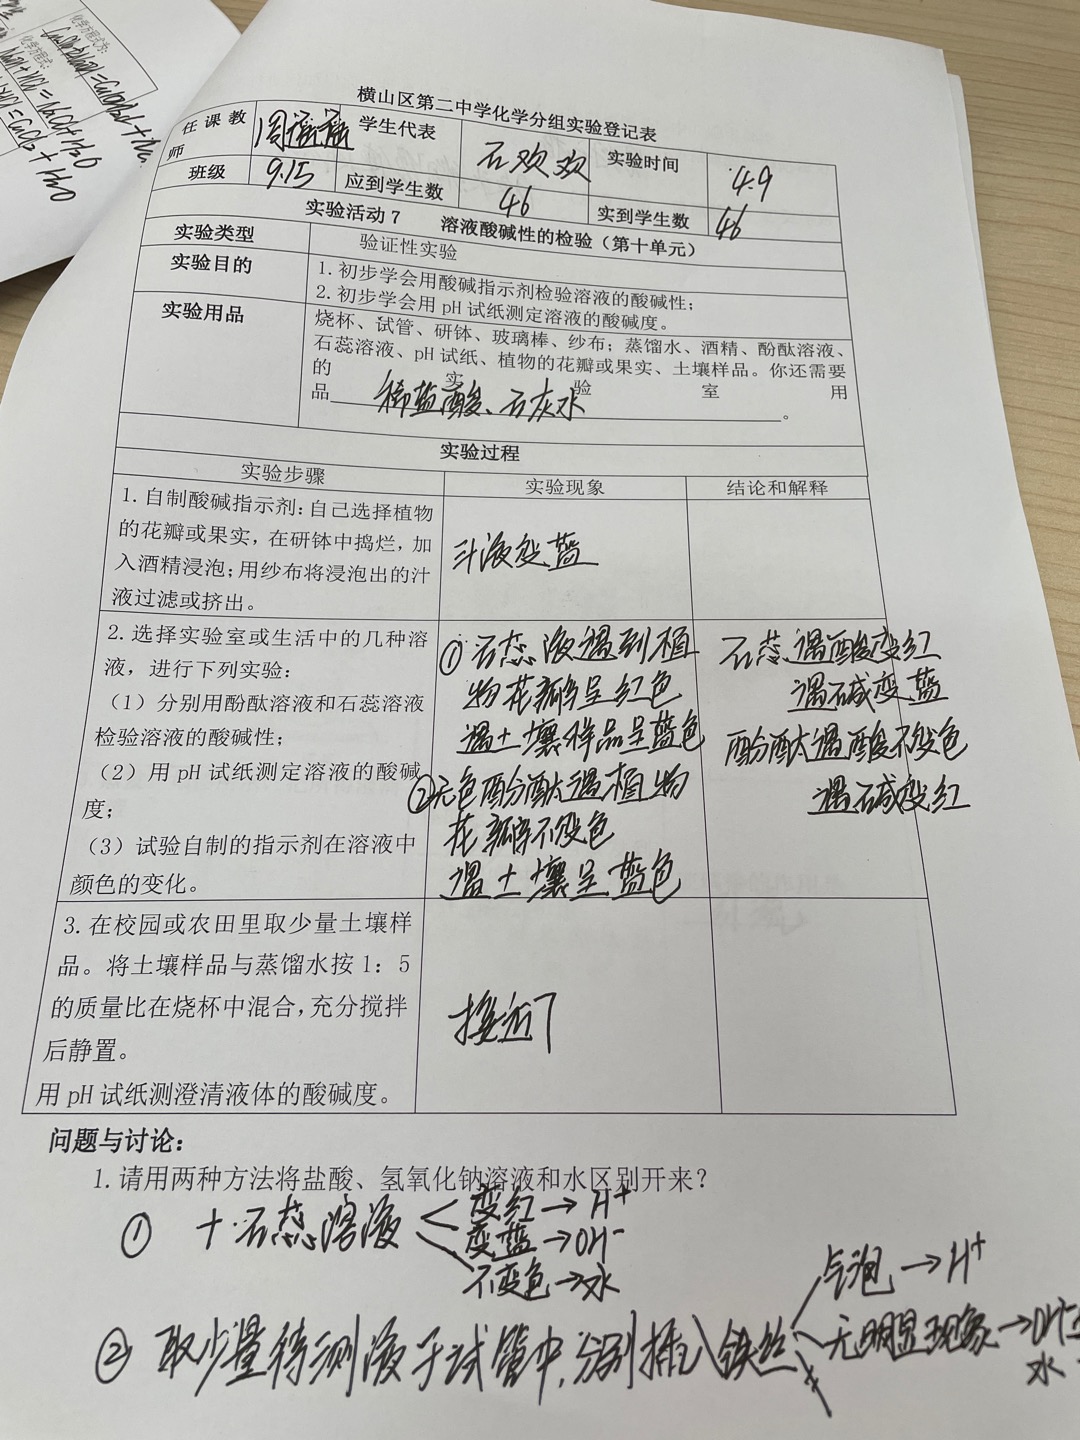 化学方程式为:
化学方程式:
NaOH + HCl = NaCl + H₂O
横山区第二中学化学分组实验登记表
任课教师 学生代表 石欢欢 实验时间 4.9
班级 9.15 应到学生数 46 实到学生数 46
实验活动7 溶液酸碱性的检验（第十单元）
实验类型 验证性实验
实验目的 1.初步学会用酸碱指示剂检验溶液的酸碱性；
2.初步学会用 pH 试纸测定溶液的酸碱度。
实验用品 烧杯、试管、研钵、玻璃棒、纱布；蒸馏水、酒精、酚酞溶液、
石蕊溶液、pH 试纸、植物的花瓣或果实、土壤样品。你还需要
的 实 验 室 用
品 稀盐酸、石灰水 。
实验过程
实验步骤 实验现象 结论和解释
1.自制酸碱指示剂：自己选择植物
的花瓣或果实，在研钵中捣烂，加
入酒精浸泡；用纱布将浸泡出的汁
液过滤或挤出。
汁液变蓝
2.选择实验室或生活中的几种溶
液，进行下列实验：
（1）分别用酚酞溶液和石蕊溶液
检验溶液的酸碱性；
（2）用 pH 试纸测定溶液的酸碱
度；
（3）试验自制的指示剂在溶液中
颜色的变化。
①石蕊液遇到植
物花瓣呈红色
遇土壤样品呈蓝色
②无色酚酞遇植物
花瓣不变色
遇土壤呈蓝色
石蕊遇酸变红
遇碱变蓝
酚酞遇酸不变色
遇碱变红
3.在校园或农田里取少量土壤样
品。将土壤样品与蒸馏水按 1：5
的质量比在烧杯中混合，充分搅拌
后静置。
用 pH 试纸测澄清液体的酸碱度。
接近7
问题与讨论：
1.请用两种方法将盐酸、氢氧化钠溶液和水区别开来？
① +石蕊溶液 变红→H⁺
变蓝→OH⁻
不变色→水
② 取少量待测液于试管中，分别插入铁丝 气泡→H⁺
无明显现象→OH⁻
水